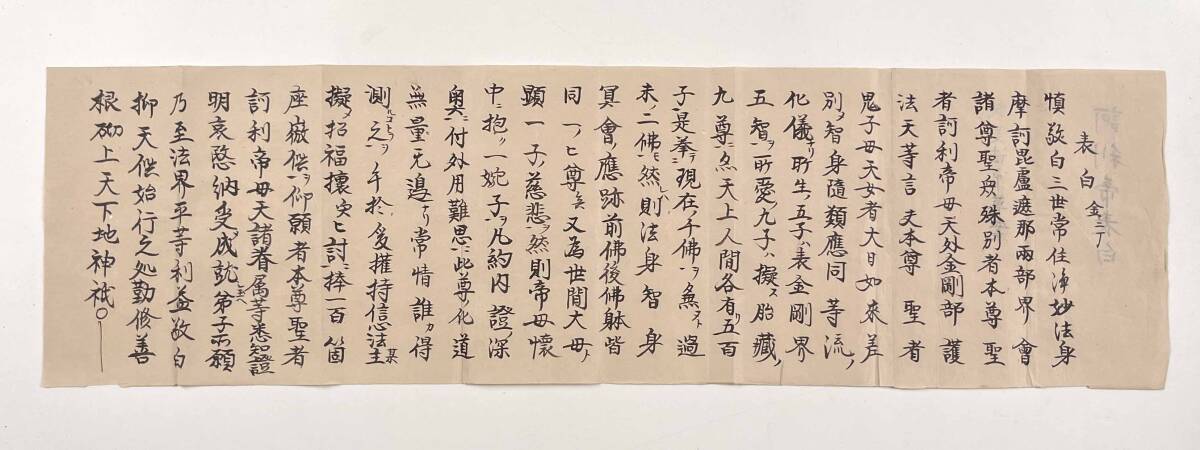 表白 金二丁
慎敬白三世常住浄妙法身
摩訶毘盧遮那兩部界會
諸尊聖衆殊別者本尊聖
者訶利帝母天外金剛部護
法天等言夫本尊聖者
鬼子母天女者大日如來差
別ノ智身隨類應同等流ノ
化儀ナリ所生ノ五子ハ表金剛界
五智ヲ一所愛ノ九子ハ擬ス胎藏ノ
九尊ニ然天上人間各有リ五百
子是挙テ現在ノ千佛ヲ無ズト過
未ノ二佛ニモ然レバ則法身智身
冥會ノ應跡前佛後佛躰皆
同一ノヒ尊矣又為世間大母ト
顕一子ノ慈悲ヲ然則帝母懐
中ニ抱ク一婉子ヲ凡約内證深
奥ニ付外用難思ニ此尊ノ化道
無量无邉ナリ常情誰カ得
測之ヲ乎於爰擁持信法主某
擬メ招福攘災ヒ討捧一百箇
座嶽供ヲ仰願者本尊聖者
訶利帝母天諸眷属等悉知證
明哀愍納受成就弟子所願玉ヘ
乃至法界平等利益敬白
抑天供始行之処勤修善
根砌上天下地神祇〇